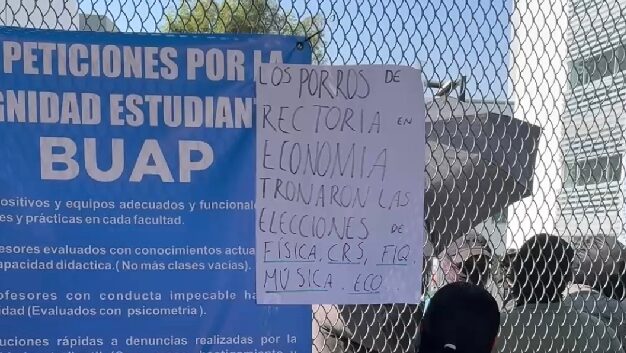 PETICIONES POR LA
GNIDAD ESTUDIANT
BUAP
positivos y equipos adecuados y funcional
es y prácticas en cada facultad.
esores evaluados con conocimientos actua
apacidad didactica.( No más clases vacías).
ofesores con conducta impecable ha
idad (Evaluados con psicometría ).
uciones rápidas a denuncias realizadas por la
LOS PORROS DE
RECTORIA EN
ECONOMIA
TRONARON LAS
ELECCIONES DE
FÍSICA, CRS, FIQ.
MÚSICA. ECO